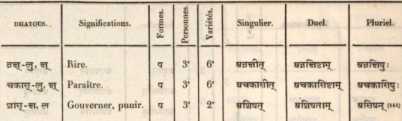 DHATOUS. Significations. Formes. Personnes. Variétés. Singulier. Duel. Pluriel.
Rire. प 3ᵉ 6ᵉ अहसीत् अहसिष्टाम् अहसिषुः
Paraître. प 3ᵉ 6ᵉ अचकासीत् अचकासिष्टाम् अचकासिषुः
Gouverner, punir. प 3ᵉ 2ᵉ अशिषत् अशिषताम्